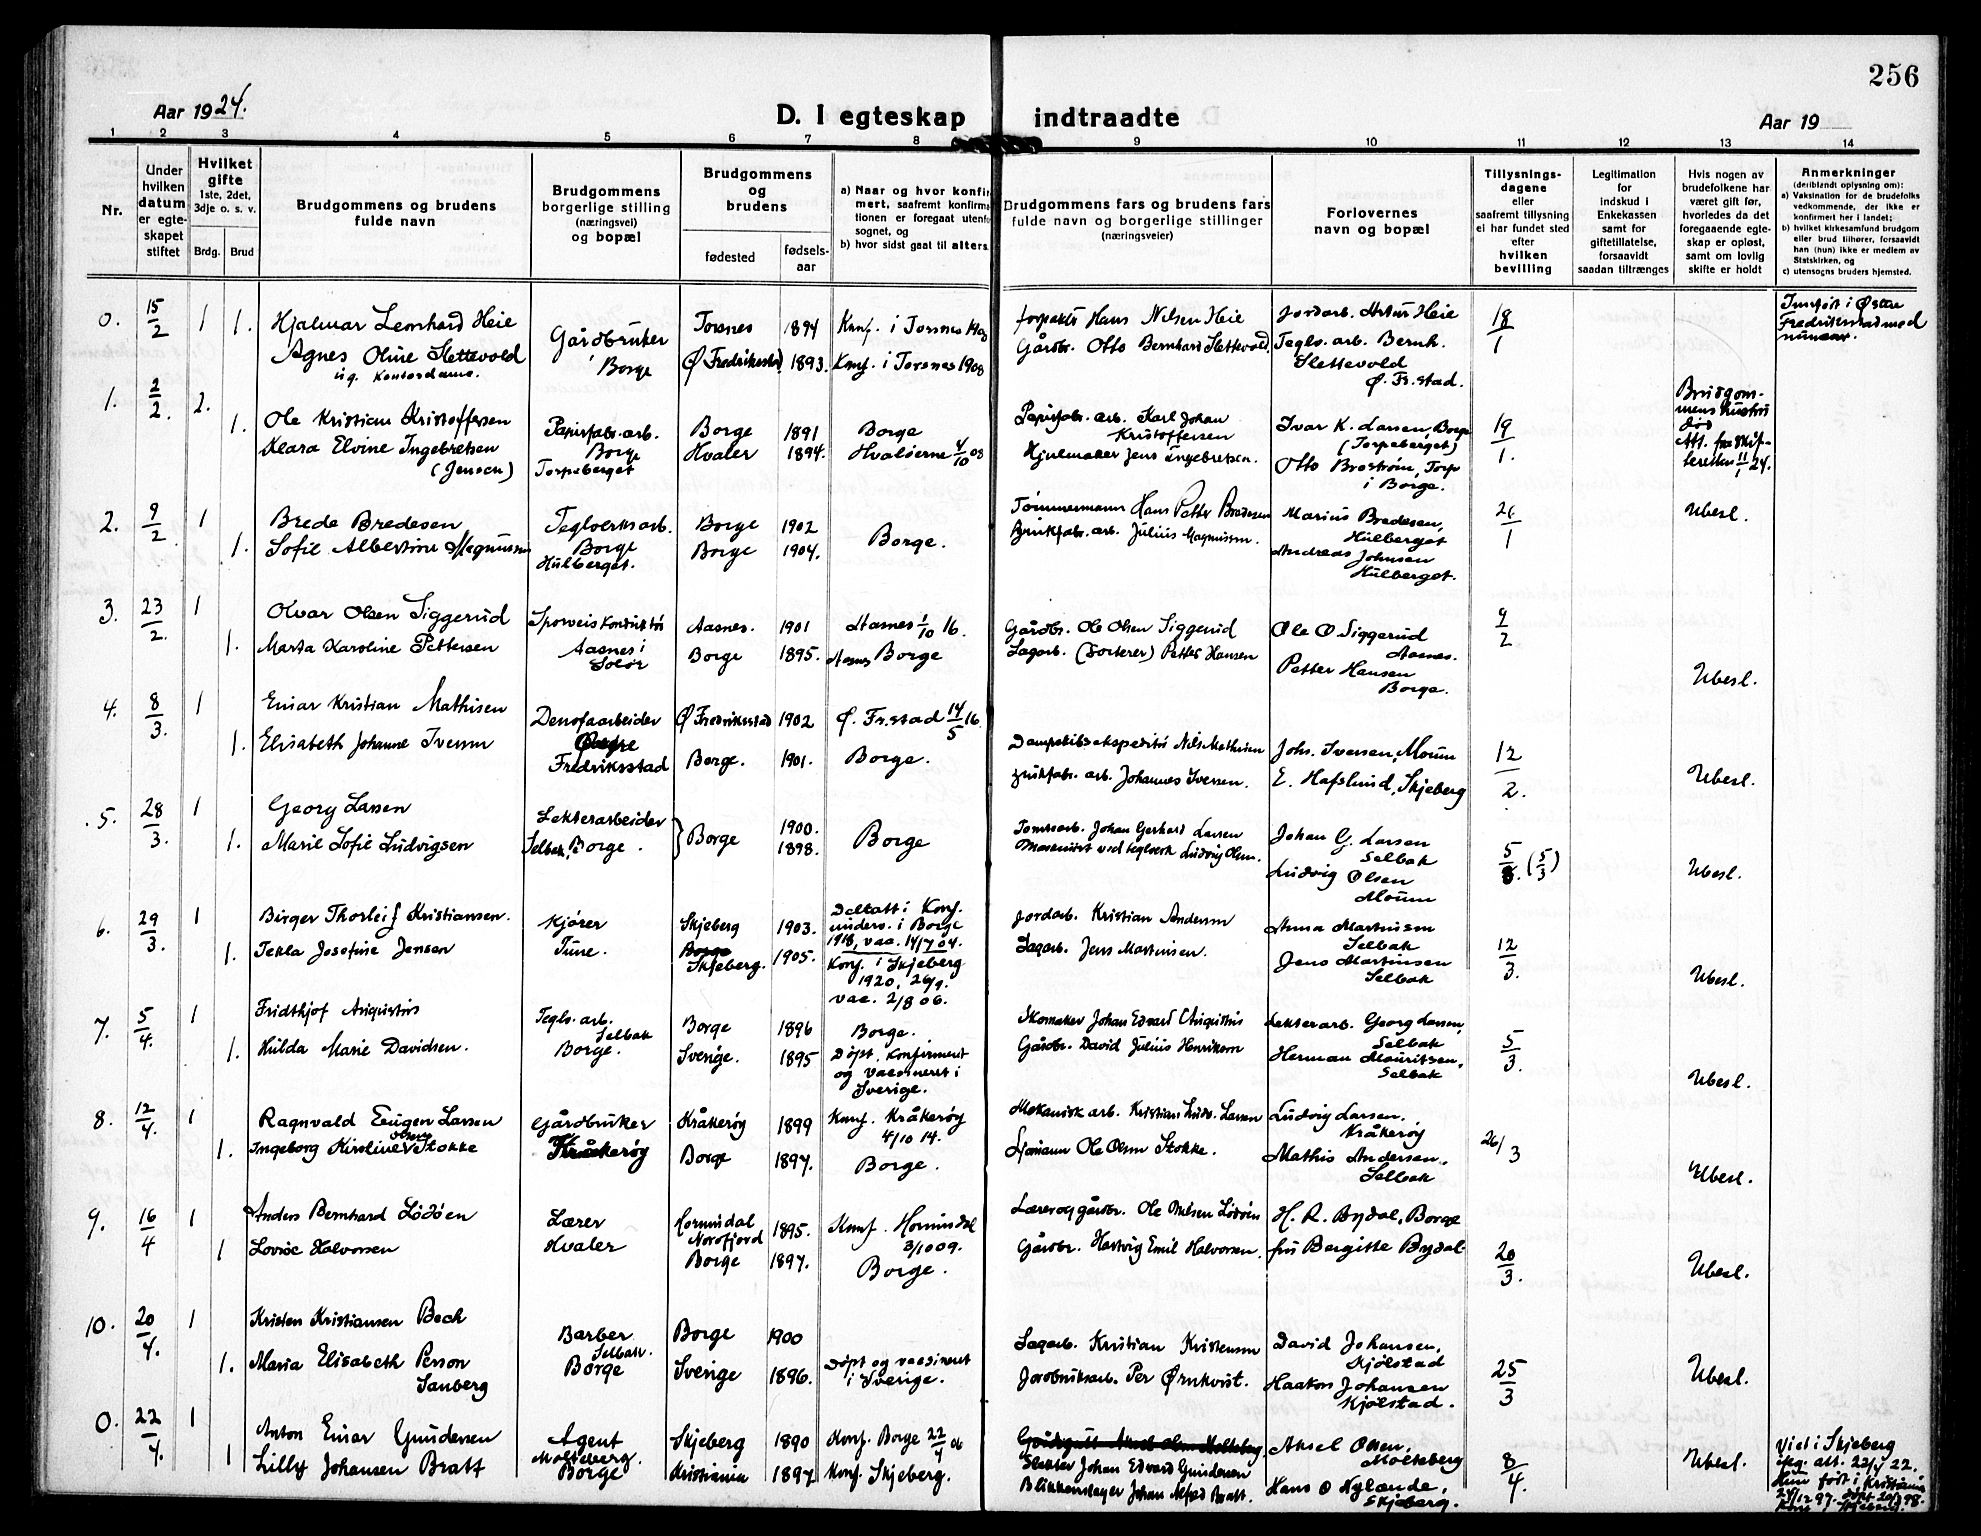 256
Aar 1924.
D. I egteskap indtraadte
Aar 19
1 2 3 4 5 6 7 8 9 10 11 12 13 14
Nr.
Under hvilken datum er egteskapet stiftet
Hvilket gifte
1ste, 2det, 3dje o. s. v.
Brdg. Brud
Brudgommens og brudens fulde navn
Brudgommens borgerlige stilling (næringsvei) og bopæl
Brudgommens og brudens
fødested
fødselsaar
a) Naar og hvor konfirmert, saafremt konfirmationen er foregaat utenfor sognet, og
b) hvor sidst gaat til alters.
Brudgommens fars og brudens fars fulde navn og borgerlige stillinger (næringsveier)
Forlovernes navn og bopæl
Tillysningsdagene eller saafremt tillysning ei har fundet sted efter hvilken bevilling
Legitimation for indskud i Enkekassen samt for giftetillatelse, forsaavidt saadan tiltrænges
Hvis nogen av brudefolkene har været gift før, hvorledes da det foregaaende egteskap er opløst, samt om lovlig skifte er holdt
Anmerkninger
(deriblandt oplysning om):
a) Vaksination for de brudefolks vedkommende, der ikke er konfirmert her i landet;
b) hvilket kirkesamfund brudgom eller brud tilhører, forsaavidt han (hun) ikke er medlem av Statskirken, og
c) utensogns bruders hjemsted.
0. 15/2 1 1. Hjalmar Leonhard Heie Gårdbruker Torsnes 1894 Konf. i Torsnes Hans Nilsen Heie Jordarb. Artur Heie 18/1 Innført i Østre
Agnes Oline Slettevold Borge Ø Fredrikstad 1893. Konf. i Torsnes 1908 Gårdbr. Otto Bernhard Slettevold, Tegls. arb. Bernh. Fredrikstad med
ug. Kontordame. Slettevold nummer.
Ø. Fr.stad.
1. 2/2. 2. Ole Kristian Kristoffersen Papirfabr. arb. Borge 1891 Borge Papirfabr. arb. Karl Johan Kristoffersen Ivar K. Larsen, Borge (Torpeberget) 19/1. Brudgommens hustru død
1. Klara Elvine Ingebretsen (Jensen) Borge Torpeberget Hvaler 1894. Hvaløerne 4/10 08 Hjulmaker Jens Ingebretsen. Otto Brostrøm, Torp i Borge. Att. fra skifteretten 11/1 24.
2. 9/2 1 Brede Bredesen Teglverksarb. Borge 1902 Borge. Tømmermann Hans Petter Bredesen Marius Bredesen, Hulberget 26/1 Ubesl.
1. Sofie Albertine Magnussen Borge Hulberget. Borge 1904. Brukfabr. arb. Julius Magnussen. Andreas Johnsen Hulberget.
3. 23/2. 1 Olvar Olsen Siggerud Sporveiskonduktør Aasnes. 1901 Aasnes 1/10 16. Gårdbr. Ole Olsen Siggerud Ole O. Siggerud Aasnes. 9/2
1. Marta Karoline Pettersen Aasnes i Solør Borge 1895. Aasnes Borge Sagarb. (Sorterer) Petter Hansen Petter Hansen Borge. Ubesl.
4. 8/3. 1 Einar Kristian Mathisen Denofaarbeider Ø Fredriksstad 1902 Ø. Fr.stad 14/5 16. Dampskibsekspeditør Nils Mathisen Johs. Iversen, Moum 12/2.
1. Elisabeth Johanne Iversen Fredriksstad Borge. 1901. Borge. arb. Johannes Iversen. E. Hafslund, Skjeberg Ubesl.
5. 28/3. 1 Georg Larsen Lekterarbeider Borge 1900. Borge Tomtearb. Johan Gerhard Larsen Johan G. Larsen Selbak 5/3. (5/3)
1. Marie Sofie Ludvigsen Selbak, Borge. 1898. Maskinist ved teglverk Ludvig Olsen. Ludvig Olsen Moum Ubesl.
6. 29/3. 1 Birger Thorleif Kristiansen. Kjører Skjeberg 1903. Deltatt i Konf. underv. i Borge 1918, vac. 14/7 04. Jordarb. Kristian Andersen Anna Martinsen Selbak 12/3.
1. Tekla Josefine Jensen Tune. Borge Skjeberg. 1905. Konf. i Skjeberg 1920, 26/9. vac. 2/8 06. Sagarb. Jens Martinsen. Jens Martinsen Selbak Ubesl.
7. 5/4. 1 Fridthjof Augustus Tegls. arb. Selbak Borge 1896 Borge. Skomaker Johan Edvard Augustus Lekterarb. Georg Larsen, Selbak 5/3.
1. Hulda Marie Davidsen. Borge. Sverige. 1895 Døpt, Konfirmert og vaccineret i Sverige. Gårdbr. David Julius Henriksen Herman Mauritzen, Selbak Ubesl.
8. 12/4. 1 Ragnvald Eugen Larsen Gårdbruker Kråkerøy 1899 Konf. Kråkerøy 4/10 14. Mekanisk arb. Kristian Ludv. Larsen Ludvig Larsen. Kråkerøy 26/3
1. Ingeborg Kirstine Olsen Stokke Kråkerøy Borge 1897. Borge. Sjømann Ole Olsen Stokke. Mathis Andersen, Selbak Ubesl.
9. 16/4 1 Anders Bernhard Lødøen Lærer Hornindal Nordfjord 1895. Konf. Hornindal 3/10 09. Lærer og gårdbr. Ole Nilsen Lødøen H. R. Bydal, Borge
1 Lovise Halvorsen Hvaler Borge 1897. Borge. Gårdbr. Hartvig Emil Halvorsen. fru Bergitte Bydal 20/3. Ubesl.
10. 20/4. 1 Kristen Kristiansen Bech Barber Selbak. Borge 1900 Sagarb. Kristian Kristensen David Johansen, Kjølstad 25/3
1. Maria Elisabeth Person Sanberg Borge Sverige 1896. Døpt og vaccineret i Sverige. Jordbruksarb. Per Ørnkvist. Haakon Johansen Kjølstad. Ubesl.
0. 22/4. 1 Anton Einar Gundersen Agent Skjeberg 1890 Konf. Borge 22/4 06 Aksel Olsen, Molteberg 8/4.
1 Lilly Johansen Bratt Molteberg. Borge Kristiania 1897 Konf. Skjeberg. Slakter Johan Edvard Gundersen Blikkenslager Johan Alfred Bratt. Hans O Nylande, Skjeberg. Ubesl.
Viet i Skjeberg
att. 22/4 22.
Hun født i Kristiania
24/12 97.